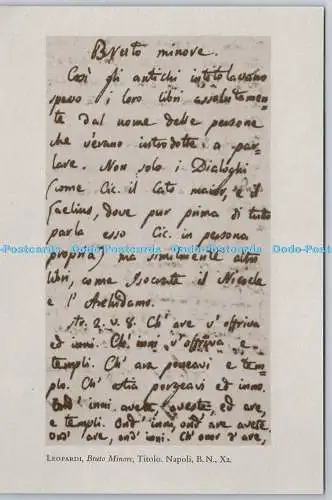 Bruto minore.
Così gli antichi intitolavano
spesso i loro libri assolutamen-
te dal nome delle persone
che v'erano introdotte a par-
lare. Non solo i Dialoghi
(come Cic. il Cato maior, e il
Laelius, dove pur prima di tutto
parla esso Cic. in persona
propria) ma similmente altri
libri, come Isocrate il Nicocle
e l'Archidamo.
v. 8. Ch' are v' offriva
ed inni. Ch' inni v' offriva e
templi. Ch' ara porgeavi e tem-
plo. Ch' ostia porgeavi ed inno.
Ond' inni aveste, ed are,
e templi. Ond' inni, ond' are avete.
ond' are, ond' inni. Ch' are,
LEOPARDI, Bruto Minore, Titolo. Napoli, B. N., X2.
Postcards Oodo-Postcards Oodo-Postcards Oodo-Postcards